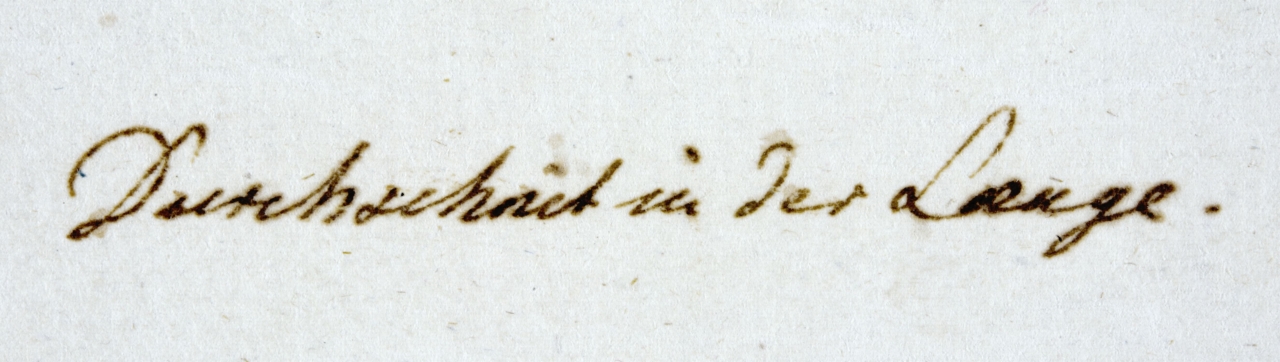 Durchschnit in der Laenge.